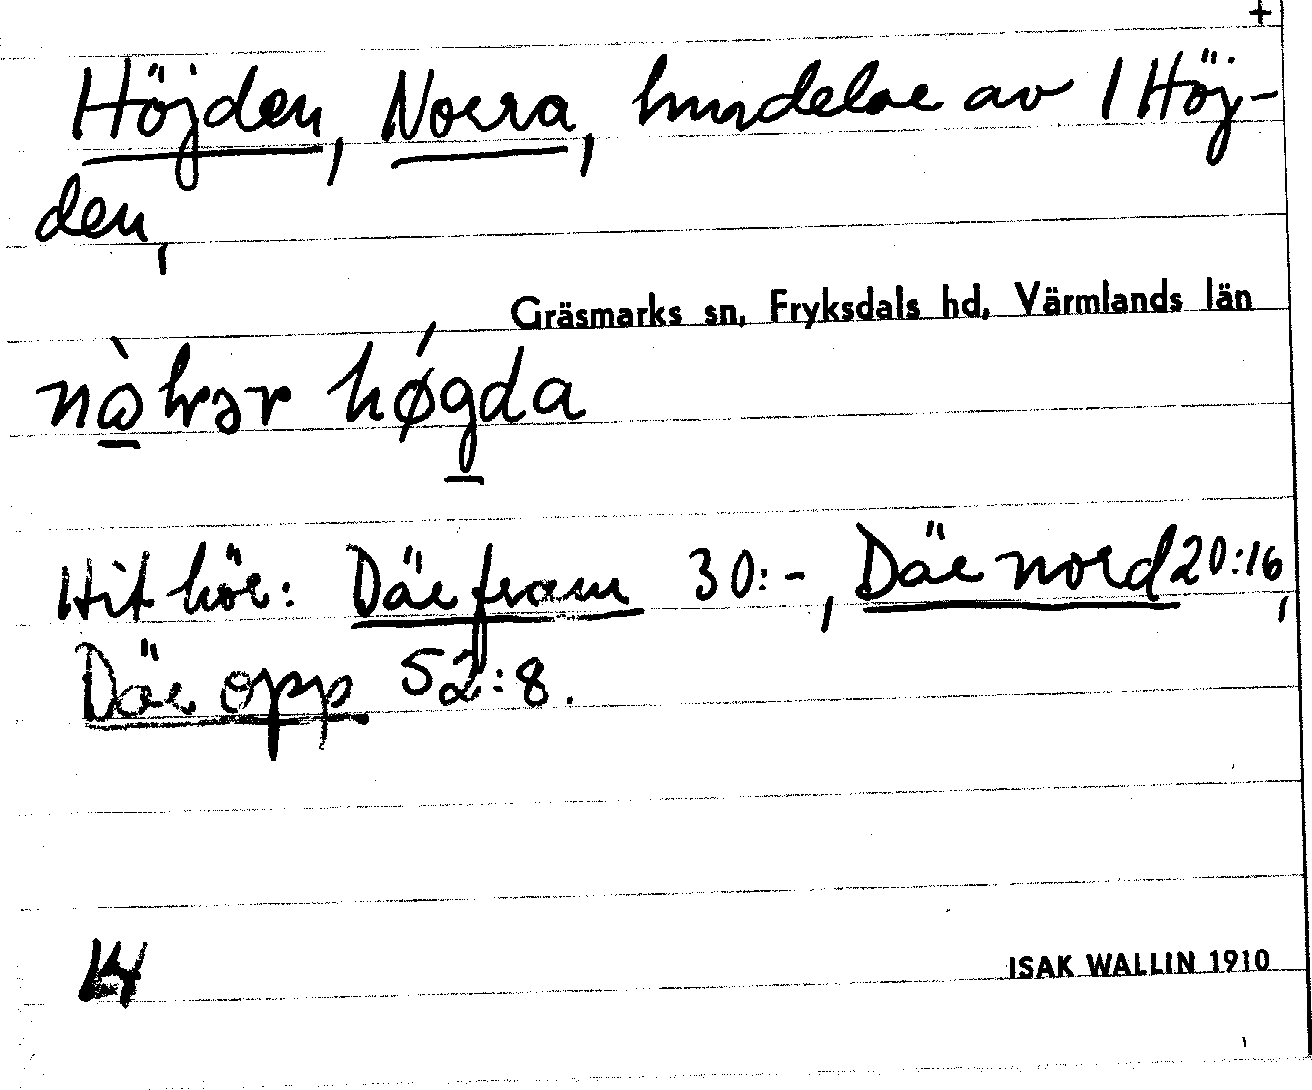 +
Höjden, Norra, hmdelar av 1 Höj-
den,
Gräsmarks sn, Fryksdals hd, Värmlands län
høgda
Hit hör: Där fram 30:-, Där nord 20:16,
Där opp 52:8.
14
ISAK WALLIN 1910